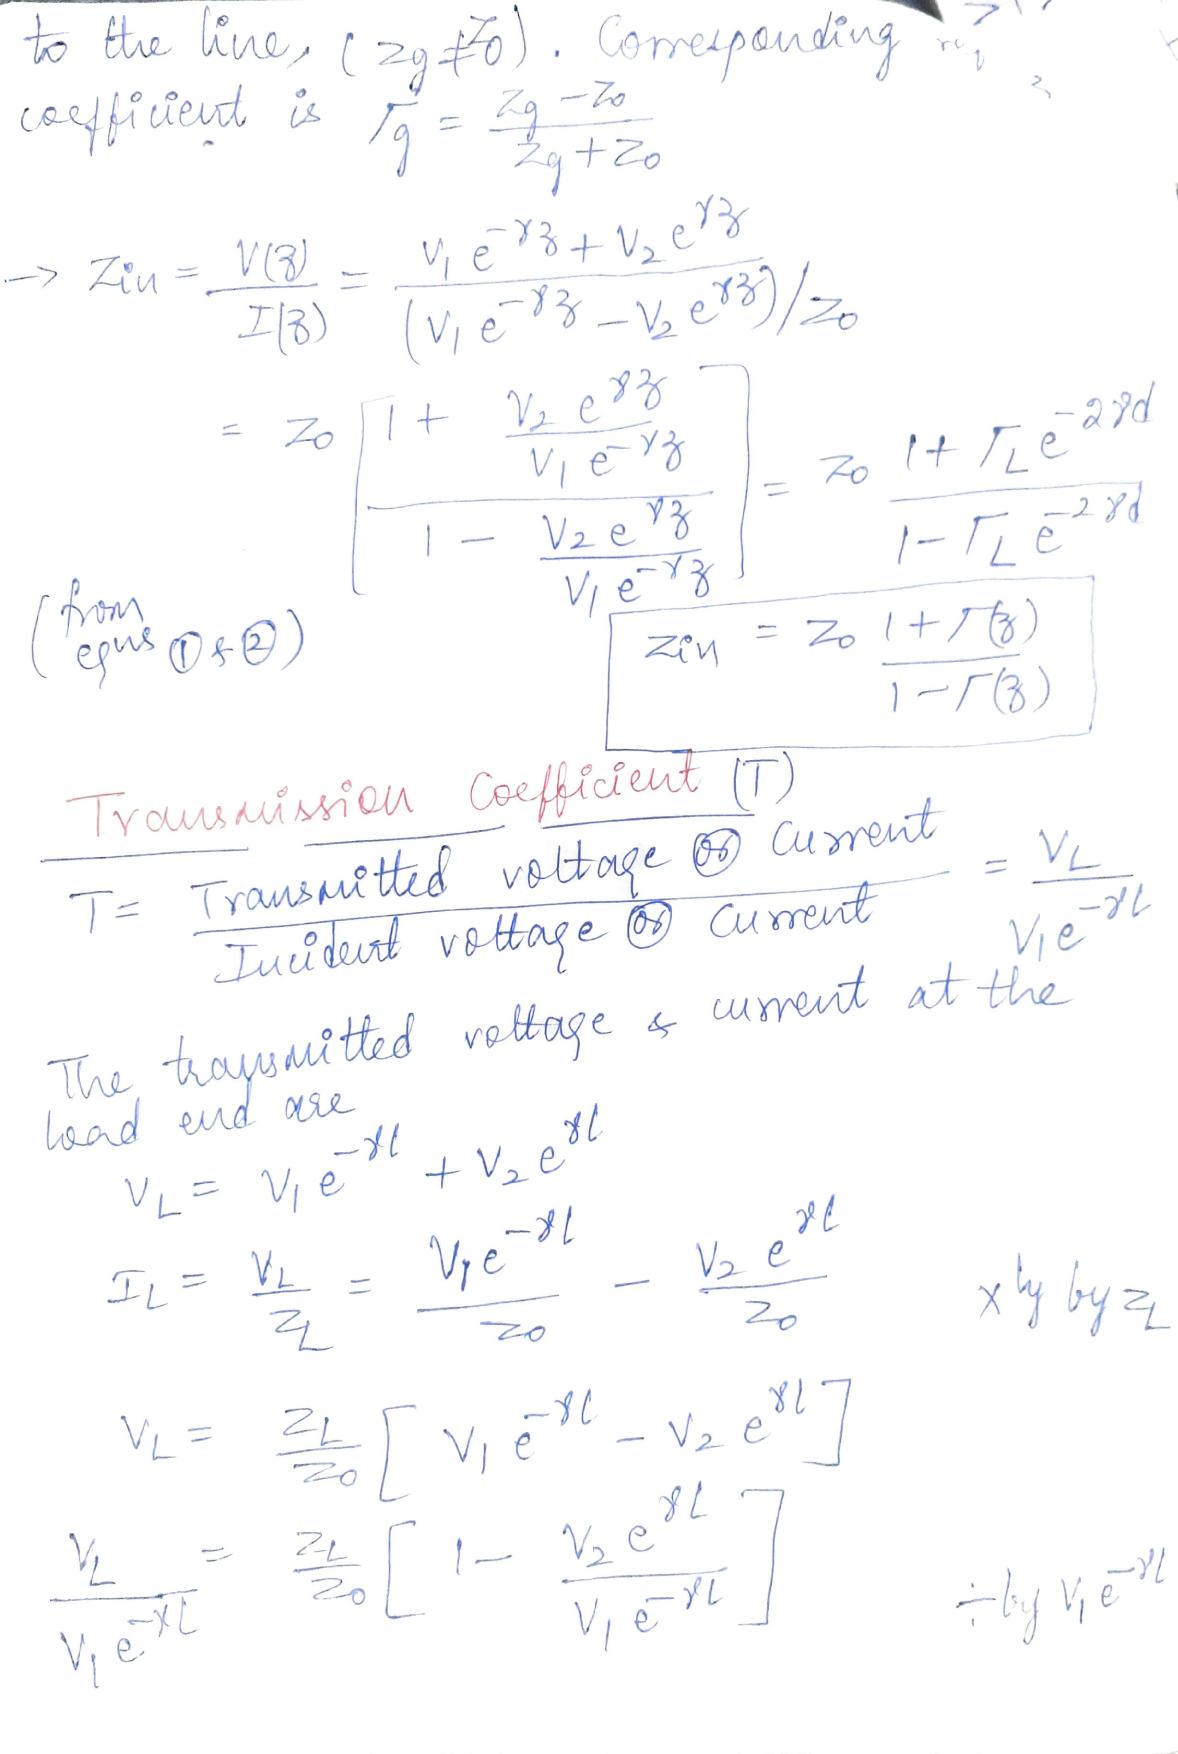 to the line, (Zg ≠ Z0). Corresponding
coefficient is Γg = (Zg - Z0) / (Zg + Z0)
→ Zin = V(z) / I(z) = (V1 e^-γz + V2 e^γz) / ((V1 e^-γz - V2 e^γz)/Z0)
= Z0 [ (1 + V2 e^γz / V1 e^-γz) / (1 - V2 e^γz / V1 e^-γz) ] = Z0 (1 + ΓL e^-2γd) / (1 - ΓL e^-2γd)
(from
eqns ① & ②)
Zin = Z0 (1 + Γ(z)) / (1 - Γ(z))
Transmission Coefficient (T)
T = Transmitted voltage (or) Current / Incident voltage (or) Current = VL / V1 e^-γl
The transmitted voltage & current at the
load end are
VL = V1 e^-γl + V2 e^γl
IL = VL / ZL = V1 e^-γl / Z0 - V2 e^γl / Z0 xly by ZL
VL = ZL / Z0 [ V1 e^-γl - V2 e^γl ]
VL / V1 e^-γl = ZL / Z0 [ 1 - V2 e^γl / V1 e^-γl ] ÷ by V1 e^-γl